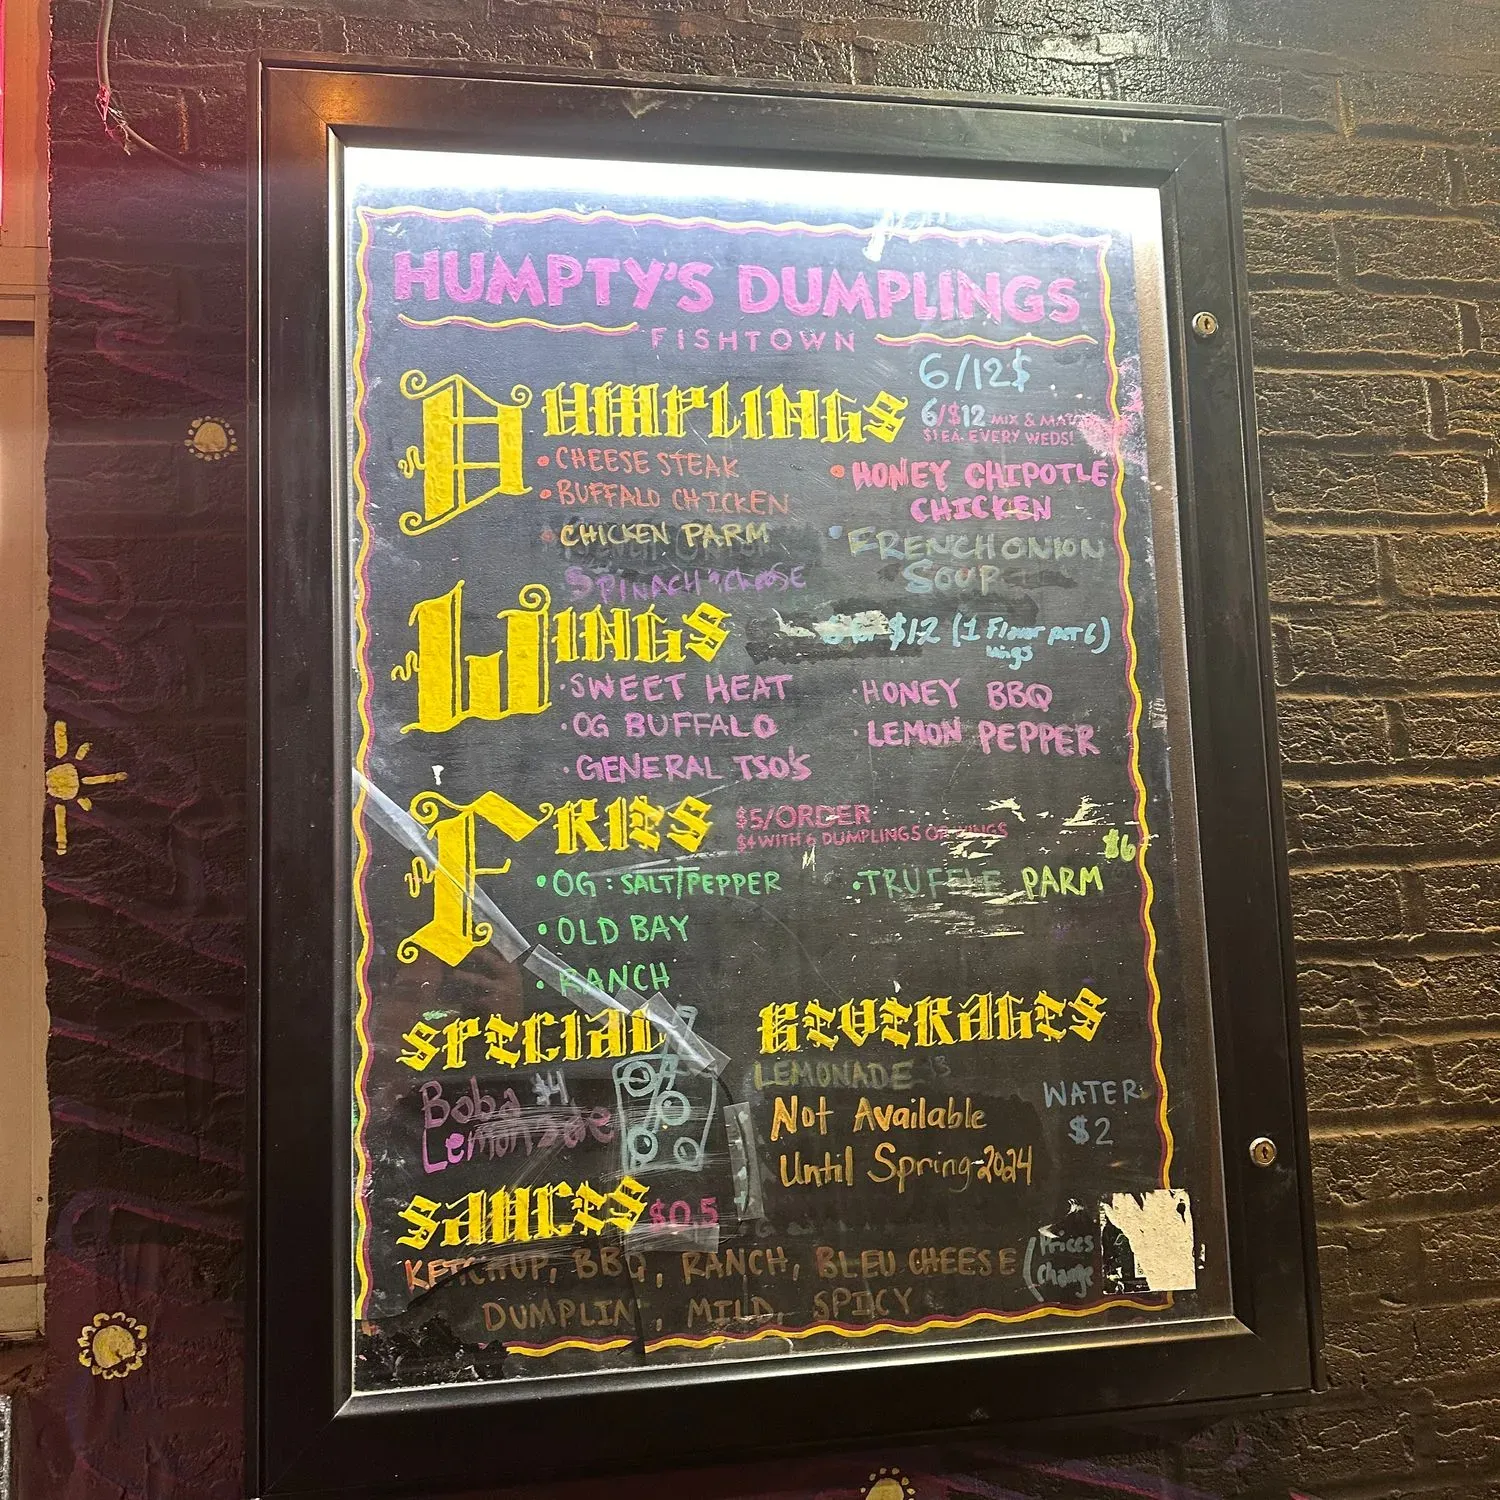 HUMPTY'S DUMPLINGS
FISHTOWN
DUMPLINGS
6/12$
6/$12 MIX & MAT
$1 EA. EVERY WEDS!
• CHEESE STEAK
• BUFFALO CHICKEN
• CHICKEN PARM
SPINACH 'n CHEESE
• HONEY CHIPOTLE
CHICKEN
• FRENCH ONION
SOUP
WINGS
$12 (1 Flavor per 6
wings)
• SWEET HEAT
• OG BUFFALO
• GENERAL TSO'S
• HONEY BBQ
• LEMON PEPPER
FRIES
$5/ORDER
$4 WITH 6 DUMPLINGS OR WINGS
• OG: SALT/PEPPER
• OLD BAY
• RANCH
• TRUFFLE PARM
$6
SPECIAL
Boba $4
Lemonade
BEVERAGES
LEMONADE
Not Available
Until Spring-2024
WATER
$2
SAUCES $0.5
KETCHUP, BBQ, RANCH, BLEU CHEESE
DUMPLIN', MILD, SPICY
(Prices
Change